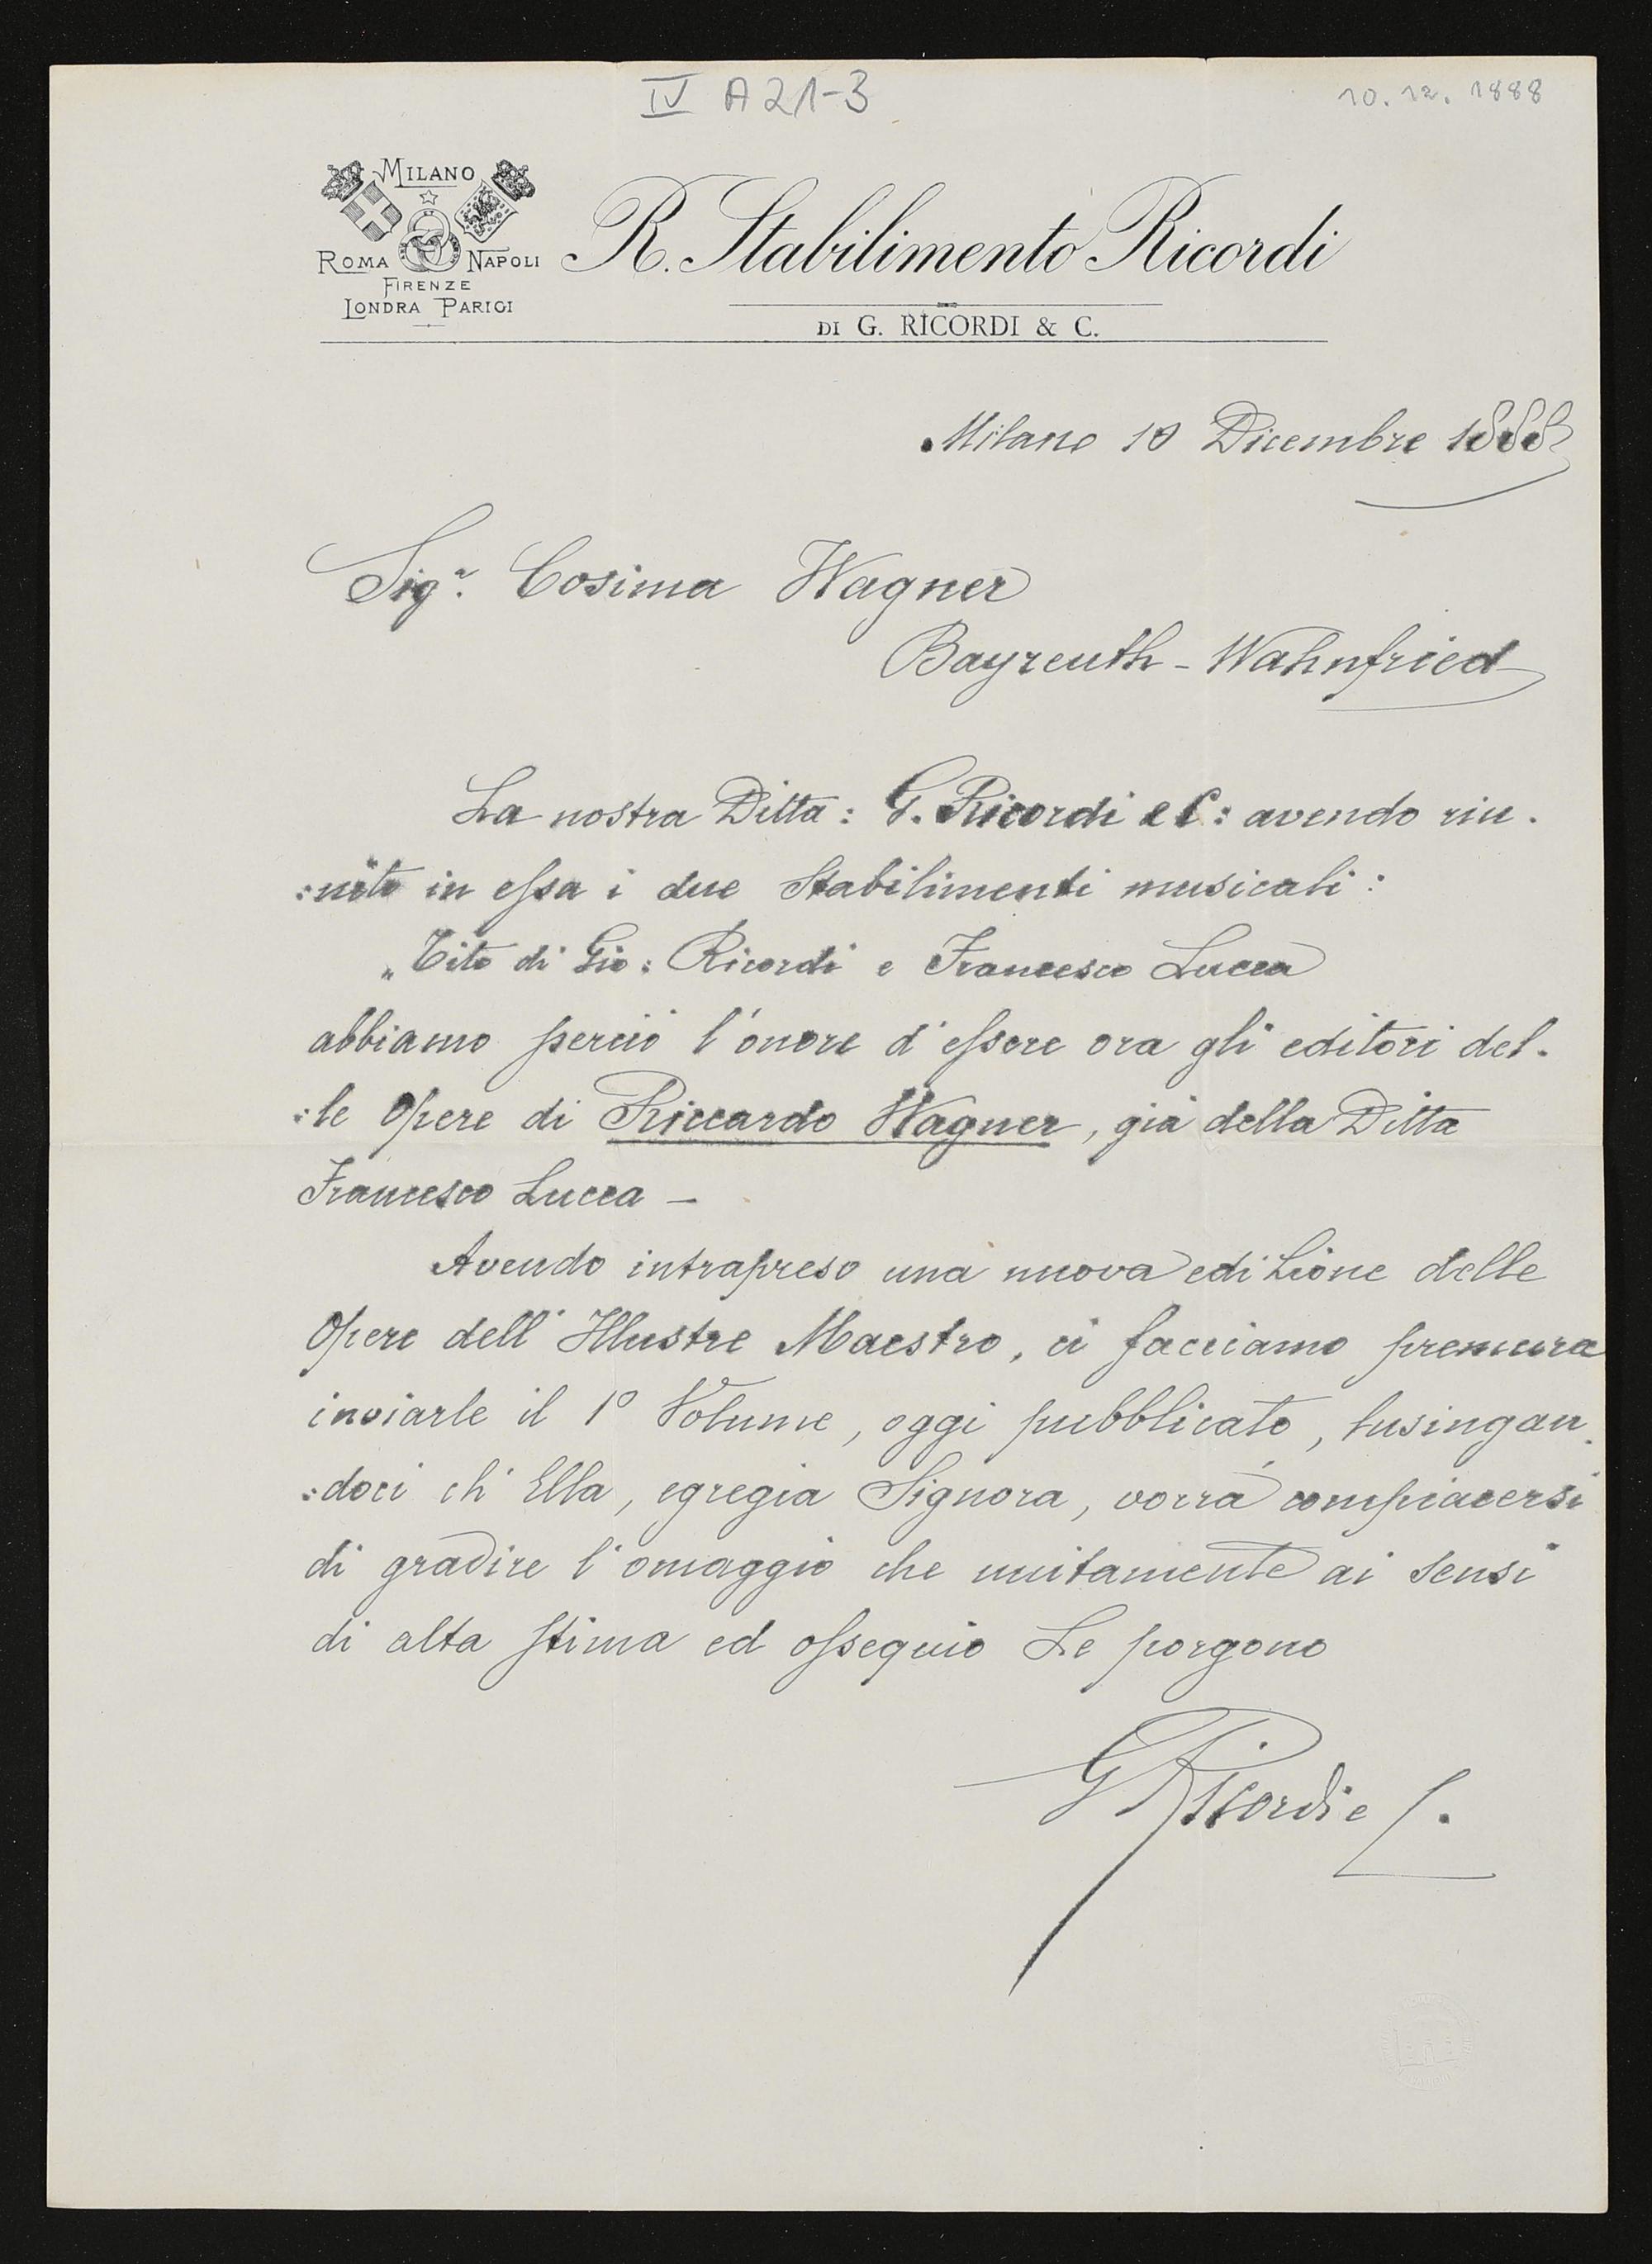 IV A21-3
10.12.1888
MILANO
ROMA NAPOLI
FIRENZE
LONDRA PARIGI
R. Stabilimento Ricordi
DI G. RICORDI & C.
Milano 10 Dicembre 1888
Sigª. Cosima Wagner
Bayreuth - Wahnfried
La nostra Ditta: G. Ricordi e C: avendo riu.
:nito in essa i due Stabilimenti musicali:
„Tito di Gio: Ricordi e Francesco Lucca
abbiamo perciò l'onore d'essere ora gli editori del.
:le Opere di Riccardo Wagner, già della Ditta
Francesco Lucca —
Avendo intrapreso una nuova edizione delle
Opere dell'Illustre Maestro, ci facciamo premura
inviarle il 1º Volume, oggi pubblicato, lusingan.
:doci ch'Ella, egregia Signora, vorrà compiacersi
di gradire l'omaggio che unitamente ai sensi
di alta stima ed ossequio Le porgono
G Ricordi e C.